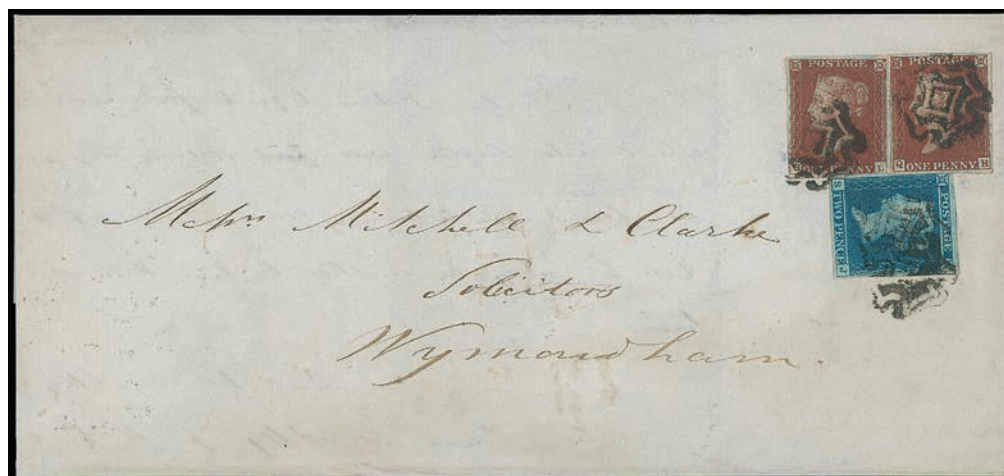 POSTAGE
POSTAGE
ONE PENNY
Q ONE PENNY H
POSTAGE
S TWO PENCE J
Messrs Mitchell & Clarke
Solicitors
Wymondham.